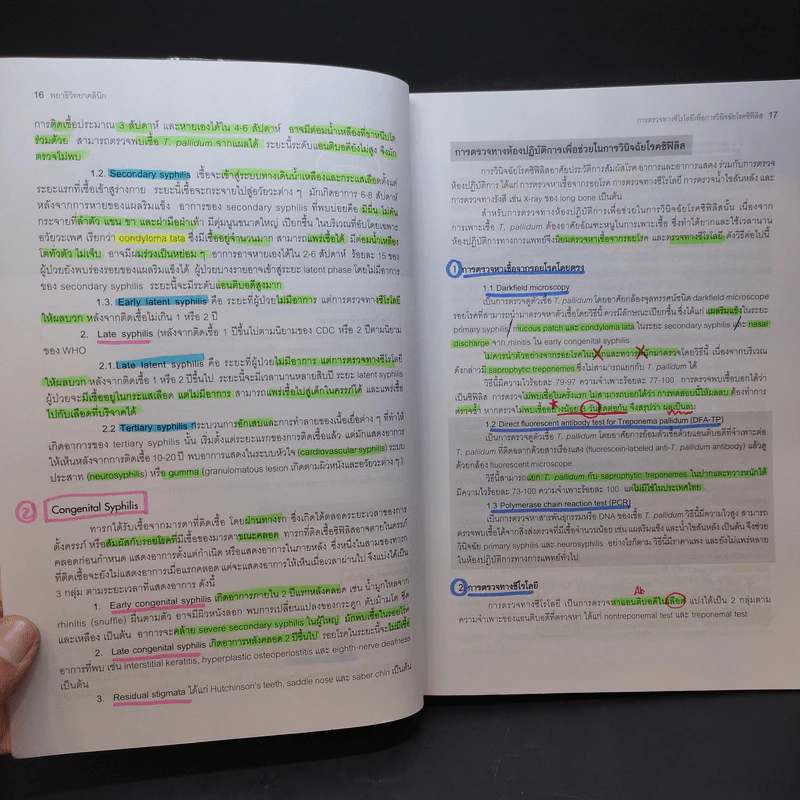 16 พยาธิวิทยาคลินิก
การติดเชื้อประมาณ 3 สัปดาห์ และหายเองได้ใน 4-6 สัปดาห์ อาจมีต่อมน้ำเหลืองที่ขาหนีบโต
ร่วมด้วย สามารถตรวจพบเชื้อ T. pallidum จากแผลได้ ระยะนี้ระดับแอนติบอดียังไม่สูง จึงมัก
ตรวจไม่พบ
1.2. Secondary syphilis เชื้อจะเข้าสู่ระบบทางเดินน้ำเหลืองและกระแสเลือดตั้งแต่
ระยะแรกที่เชื้อเข้าสู่ร่างกาย ระยะนี้เชื้อจะกระจายไปสู่อวัยวะต่าง ๆ มักเกิดอาการ 6-8 สัปดาห์
หลังจากการหายของแผลริมแข็ง อาการของ secondary syphilis ที่พบบ่อยคือ มีผื่น ไม่คัน
กระจายที่ลำตัว แขน ขา และฝ่ามือฝ่าเท้า มีตุ่มนูนขนาดใหญ่ เปียกชื้น ในบริเวณที่อับโดยเฉพาะ
อวัยวะเพศ เรียกว่า condyloma lata ซึ่งมีเชื้ออยู่จำนวนมาก สามารถแพร่เชื้อได้ มีต่อมน้ำเหลือง
โตทั่วตัว ไม่เจ็บ อาจมีผมร่วงเป็นหย่อม ๆ อาการอาจหายเองได้ใน 2-6 สัปดาห์ ร้อยละ 15 ของ
ผู้ป่วยยังพบร่องรอยของแผลริมแข็งได้ ผู้ป่วยบางรายอาจเข้าสู่ระยะ latent phase โดยไม่มีอาการ
ของ secondary syphilis ระยะนี้จะมีระดับแอนติบอดีสูงมาก
1.3. Early latent syphilis คือ ระยะที่ผู้ป่วยไม่มีอาการ แต่การตรวจทางซีโรโลยี
ให้ผลบวก หลังจากติดเชื้อไม่เกิน 1 หรือ 2 ปี
2. Late syphilis (หลังจากติดเชื้อ 1 ปีขึ้นไปตามนิยามของ CDC หรือ 2 ปีตามนิยาม
ของ WHO
2.1. Late latent syphilis คือ ระยะที่ผู้ป่วยไม่มีอาการ แต่การตรวจทางซีโรโลยี
ให้ผลบวก หลังจากติดเชื้อ 1 หรือ 2 ปีขึ้นไป ระยะนี้จะมีเวลานานหลายสิบปี ระยะ latent syphilis
ผู้ป่วยจะมีเชื้ออยู่ในกระแสเลือด แต่ไม่มีอาการ สามารถแพร่เชื้อไปสู่เด็กในครรภ์ได้ และแพร่เชื้อ
ไปกับเลือดที่บริจาคได้
2.2 Tertiary syphilis กระบวนการอักเสบและการทำลายของเนื้อเยื่อต่าง ๆ ที่ทำให้
เกิดอาการของ tertiary syphilis นั้น เริ่มตั้งแต่ระยะแรกของการติดเชื้อแล้ว แต่มักแสดงอาการ
ให้เห็นหลังจากการติดเชื้อ 10-20 ปี พบอาการแสดงในระบบหัวใจ (cardiovascular syphilis) ระบบ
ประสาท (neurosyphilis) หรือ gumma (granulomatous lesion เกิดตามผิวหนังและอวัยวะต่าง ๆ )
2 Congenital Syphilis
ทารกได้รับเชื้อจากมารดาที่ติดเชื้อ โดยผ่านทางรก ซึ่งเกิดได้ตลอดระยะเวลาของการ
ตั้งครรภ์ หรือสัมผัสกับรอยโรคที่มีเชื้อของมารดาขณะคลอด ทารกที่ติดเชื้อซิฟิลิสอาจตายในครรภ์
คลอดก่อนกำหนด แสดงอาการตั้งแต่กำเนิด หรือแสดงอาการในภายหลัง ซึ่งหนึ่งในสามของทารก
ที่ติดเชื้อจะยังไม่แสดงอาการเมื่อแรกคลอด แต่จะแสดงอาการให้เห็นเมื่อเวลาผ่านไป จึงแบ่งได้เป็น
3 กลุ่ม ตามระยะเวลาที่แสดงอาการ ดังนี้
1. Early congenital syphilis เกิดอาการภายใน 2 ปีแรกหลังคลอด เช่น น้ำมูกไหลจาก
rhinitis (snuffle) ผื่นตามตัว อาจมีผิวหนังลอก พบการเปลี่ยนแปลงของกระดูก ตับม้ามโต ซีด
และเหลือง เป็นต้น อาการจะคล้าย severe secondary syphilis ในผู้ใหญ่ มักพบเชื้อในรอยโรค
2. Late congenital syphilis เกิดอาการหลังคลอด 2 ปีขึ้นไป รอยโรคในระยะนี้จะไม่มีเชื้อ
อาการที่พบ เช่น interstitial keratitis, hyperplastic osteoperiostitis และ eighth-nerve deafness
เป็นต้น
3. Residual stigmata ได้แก่ Hutchinson's teeth, saddle nose และ saber chin เป็นต้น
การตรวจทางซีโรโลยีเพื่อการวินิจฉัยโรคซิฟิลิส 17
การตรวจทางห้องปฏิบัติการเพื่อช่วยในการวินิจฉัยโรคซิฟิลิส
การวินิจฉัยโรคซิฟิลิสอาศัยประวัติการสัมผัสโรค อาการและอาการแสดง ร่วมกับการตรวจ
ห้องปฏิบัติการ ได้แก่ การตรวจหาเชื้อจากรอยโรค การตรวจทางซีโรโลยี การตรวจน้ำไขสันหลัง และ
การตรวจทางรังสี เช่น X-ray ของ long bone เป็นต้น
สำหรับการตรวจทางห้องปฏิบัติการเพื่อช่วยในการวินิจฉัยโรคซิฟิลิสนั้น เนื่องจาก
การเพาะเชื้อ T. pallidum ต้องอาศัยอัณฑะหนูในการเพาะเชื้อ ซึ่งทำได้ยากและใช้เวลานาน
ห้องปฏิบัติการทางการแพทย์จึงนิยมตรวจหาเชื้อจากรอยโรค และตรวจทางซีโรโลยี ดังวิธีต่อไปนี้
1 การตรวจหาเชื้อจากรอยโรคโดยตรง
1.1 Darkfield microscopy
เป็นการตรวจดูตัวเชื้อ T. pallidum โดยอาศัยกล้องจุลทรรศน์ชนิด darkfield microscope
รอยโรคที่สามารถนำมาตรวจหาตัวเชื้อโดยวิธีนี้ ควรมีลักษณะเปียกชื้น ซึ่งได้แก่ แผลริมแข็งในระยะ
primary syphilis mucous patch และ condyloma lata ในระยะ secondary syphilis และ nasal
discharge จาก rhinitis ใน early congenital syphilis
ไม่ควรนำตัวอย่างจากรอยโรคในปากและทวารหนักมาตรวจโดยวิธีนี้ เนื่องจากบริเวณ
ดังกล่าวมี saprophytic treponemes ซึ่งไม่สามารถแยกกับ T. pallidum ได้
วิธีนี้มีความไวร้อยละ 79-97 ความจำเพาะร้อยละ 77-100 การตรวจพบเชื้อบอกได้ว่า
เป็นซิฟิลิส การตรวจไม่พบเชื้อในครั้งแรก ไม่สามารถบอกได้ว่า การทดสอบนี้ให้ผลลบ ต้องทำการ
ตรวจซ้ำ หากตรวจไม่พบเชื้ออย่างน้อย 3 วันติดต่อกัน จึงสรุปว่า ผลเป็นลบ
1.2 Direct fluorescent antibody test for Treponema pallidum (DFA-TP)
เป็นการตรวจดูตัวเชื้อ T. pallidum โดยอาศัยการย้อมตัวเชื้อด้วยแอนติบอดีที่จำเพาะต่อ
T. pallidum ที่ติดฉลากด้วยสารเรืองแสง (fluorescein-labeled anti-T. pallidum antibody) แล้วดู
ด้วยกล้อง fluorescent microscope
วิธีนี้สามารถแยก T. pallidum กับ saprophytic treponemes ในปากและทวารหนักได้
มีความไวร้อยละ 73-100 ความจำเพาะร้อยละ 100 แต่ไม่มีใช้ในประเทศไทย
1.3 Polymerase chain reaction test (PCR)
เป็นการตรวจหาสารพันธุกรรมหรือ DNA ของเชื้อ T. pallidum วิธีนี้มีความไวสูง สามารถ
ตรวจพบเชื้อได้จากสิ่งส่งตรวจที่มีเชื้อจำนวนน้อย เช่น แผลริมแข็ง และน้ำไขสันหลัง เป็นต้น จึงช่วย
วินิจฉัย primary syphilis และ neurosyphilis อย่างไรก็ตาม วิธีนี้มีราคาแพง และยังไม่แพร่หลาย
ในห้องปฏิบัติการทางการแพทย์ทั่วไป
2 การตรวจทางซีโรโลยี
Ab
การตรวจทางซีโรโลยี เป็นการตรวจหาแอนติบอดีในเลือด แบ่งได้เป็น 2 กลุ่มตาม
ความจำเพาะของแอนติบอดีที่ตรวจหา ได้แก่ nontreponemal test และ treponemal test